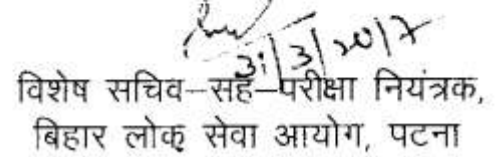 31/3/2017
विशेष सचिव–सह–परीक्षा नियंत्रक,
बिहार लोक सेवा आयोग, पटना